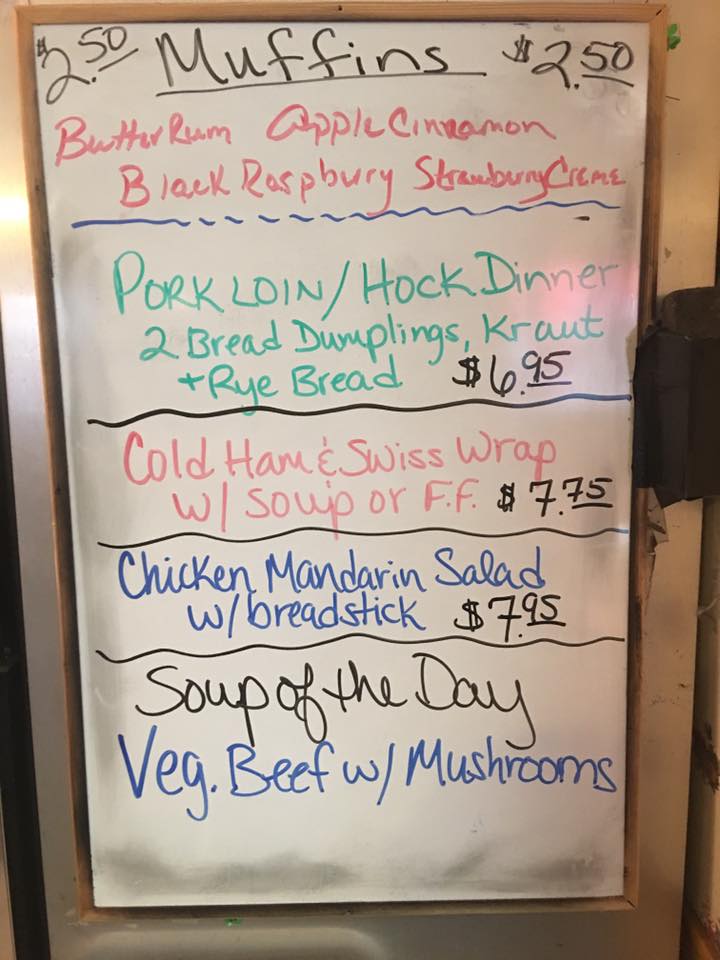 $2.50 Muffins $2.50
Butter Rum Apple Cinnamon
Black Raspbury Strawburry Creme
PORK LOIN / HOCK Dinner
2 Bread Dumplings, Kraut
+ Rye Bread $6.95
Cold Ham & Swiss Wrap
w/ Soup or F.F. $7.75
Chicken Mandarin Salad
w/ breadstick $7.95
Soup of the Day
Veg. Beef w/ Mushrooms